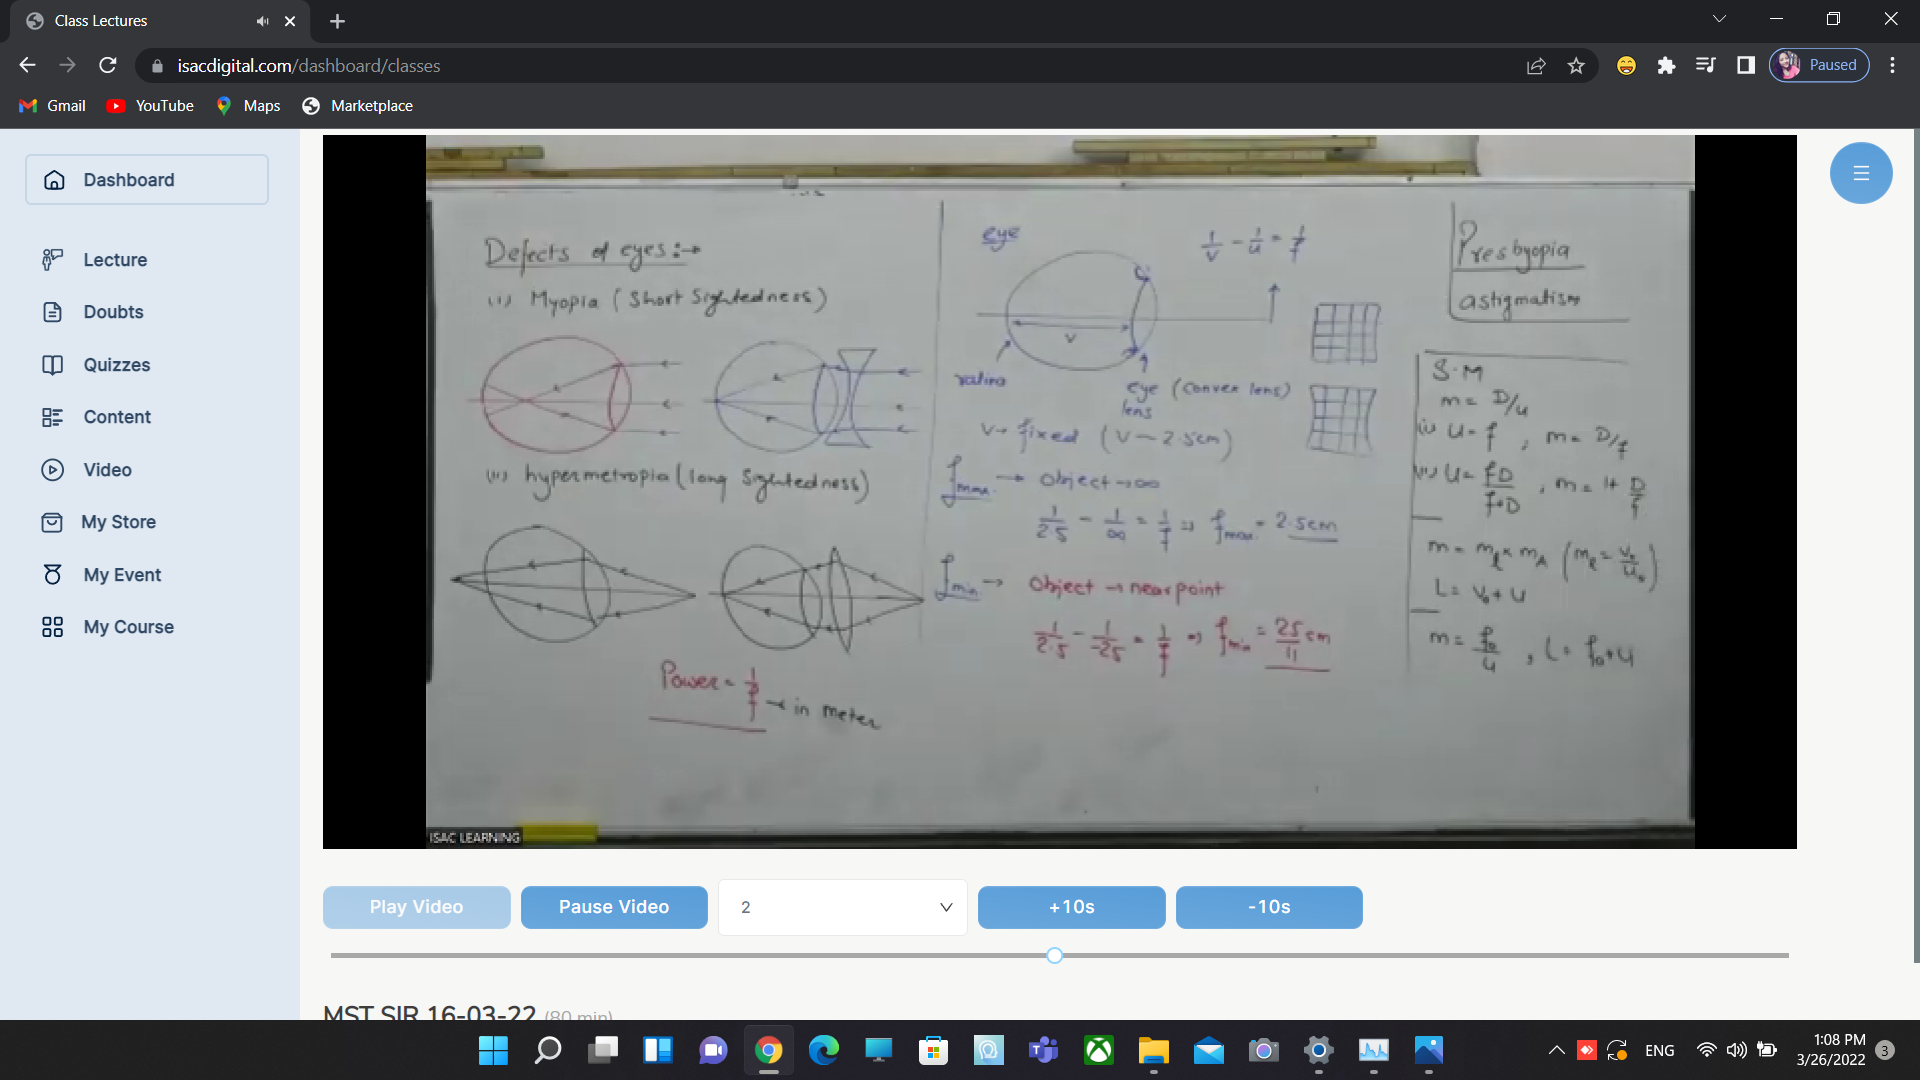 Class Lectures
isacdigital.com/dashboard/classes
Paused
Gmail
YouTube
Maps
Marketplace
Dashboard
Lecture
Doubts
Quizzes
Content
Video
My Store
My Event
My Course
Defects of eyes:→
(i) Myopia (Short Sightedness)
(ii) hypermetropia (long Sightedness)
Power = 1/f ← in meter
eye
1/v - 1/u = 1/f
v
retina
eye (convex lens)
lens
v → fixed (v — 2.5cm)
fmax. → Object → ∞
1/2.5 - 1/∞ = 1/f ⇒ fmax = 2.5cm
fmin → Object → near point
1/2.5 - 1/-25 = 1/f ⇒ fmin = 25/11 cm
Presbyopia
astigmatism
S.M
m = D/u
(i) U = f , m = D/f
(ii) U = fD/f+D , m = 1+ D/f
m = mℓ × mA (mℓ = vo/uo)
L = vo + u
m = fo/u , L = fo+u
ISAC LEARNING
Play Video
Pause Video
2
+10s
-10s
MST SIR 16-03-22 (80 min)
ENG
1:08 PM
3/26/2022
3